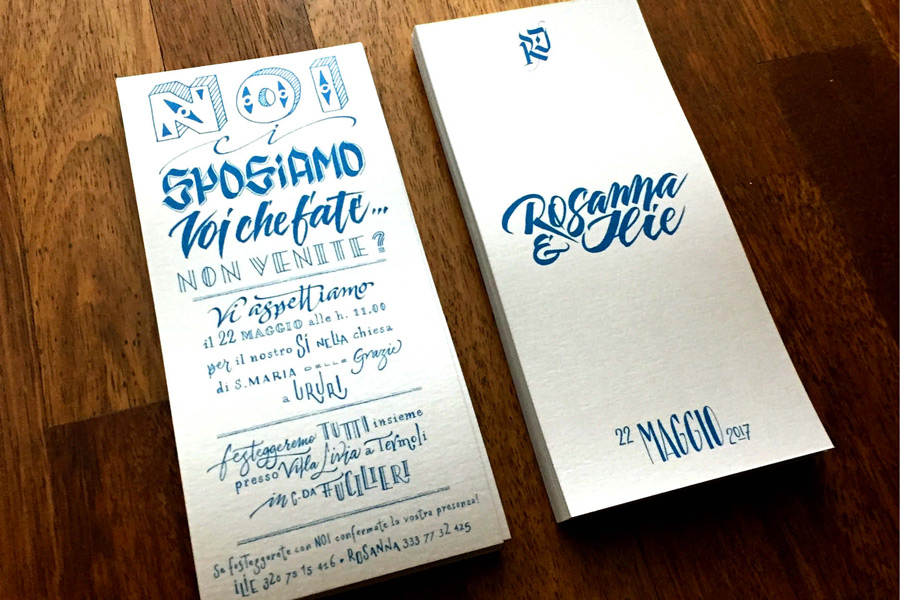 NOI
ci
SPOSiAMO
Voi che fate...
NON VENITE?
Vi aspettiamo
il 22 MAGGIO alle h. 11.00
per il nostro SÌ NELLA chiesa
di S.MARIA DELLE Grazie
a URURI
festeggeremo TUTTI insieme
presso Villa Livia a Termoli
in C.DA FUCILIERI
Se festeggerete con NOI confermate la vostra presenza!
ILIE 320 75 15 416 • ROSANNA 333 77 32 425
RI
Rosanna
& Ilie
22 MAGGIO 2017